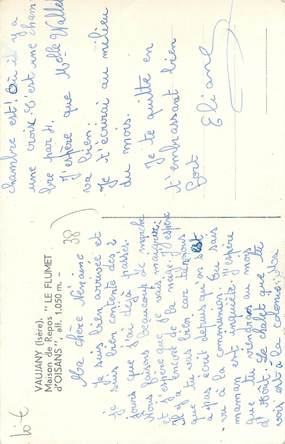 VAUJANY (Isère).
Maison de Repos "LE FLUMET
d'OISANS". alt. 1.050 m. -
38
Ma chère Nénaine
Je suis bien arrivée et
je suis bien contente des 2
jours que j'ai déjà passés.
Nous faisons beaucoup de marche
et j'espère que je vais maigrir.
Il y a encore de la neige. J'espère
que tu vas bien, car depuis
a pas écrit depuis qu'on est
à la communion. Tu sais
maman est inquiète. J'espère
que tu viendras au mois
d'Août. Le chalet que tu
vois est à la colonie. Ma
chambre est! Où il y a
une croix. C'est une cham-
bre par 4.
J'espère que Melle
va bien.
Je t'écrirai au milieu
du mois.
Je te quitte en
t'embrassant bien
fort
Eliane